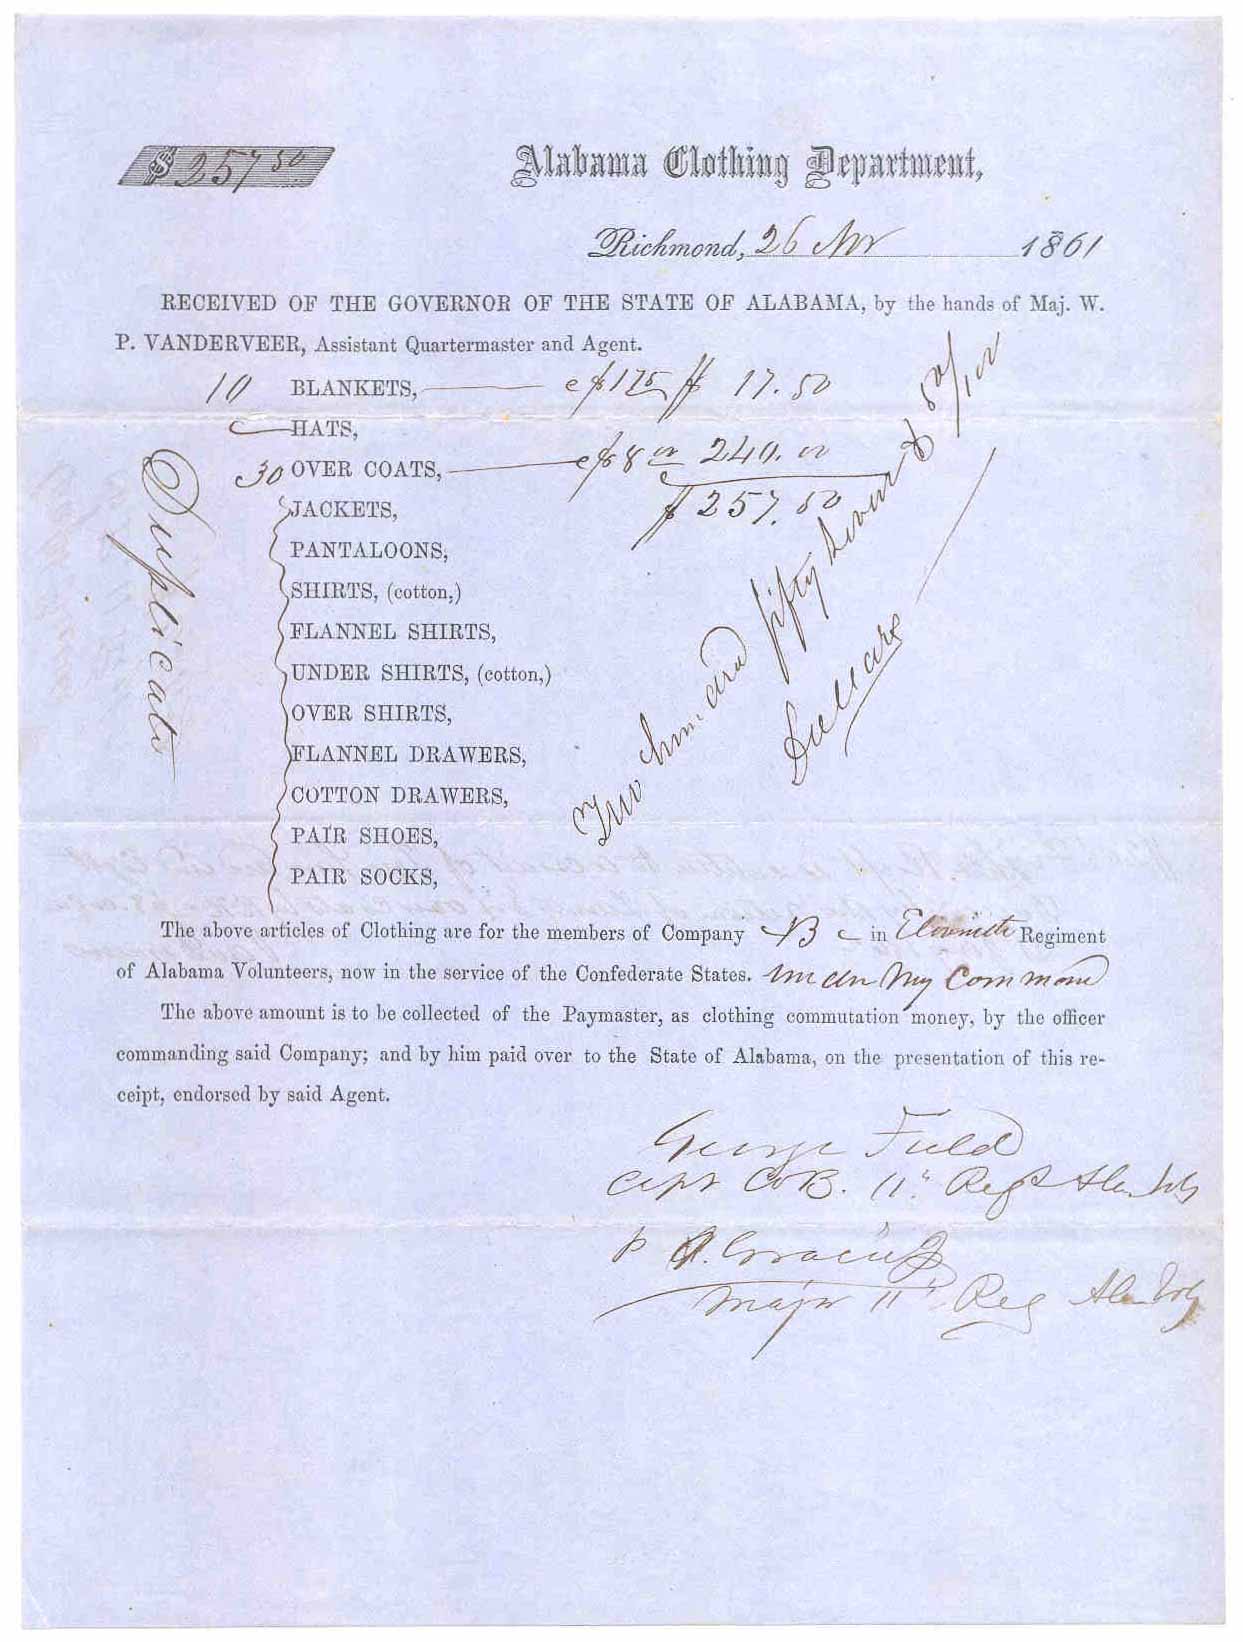 $ 257 50
Alabama Clothing Department,
Richmond, 26 Nov 1861
RECEIVED OF THE GOVERNOR OF THE STATE OF ALABAMA, by the hands of Maj. W.
P. VANDERVEER, Assistant Quartermaster and Agent.
10 BLANKETS, @ $1 75 $ 17.50
HATS,
30 OVER COATS, @ $8 00 240.00
$ 257.50
JACKETS,
PANTALOONS,
SHIRTS, (cotton,)
FLANNEL SHIRTS,
UNDER SHIRTS, (cotton,)
OVER SHIRTS,
FLANNEL DRAWERS,
COTTON DRAWERS,
PAIR SHOES,
PAIR SOCKS,
Duplicate
Two hundred fifty seven & 50/100
Dollars
The above articles of Clothing are for the members of Company B in Eleventh Regiment
of Alabama Volunteers, now in the service of the Confederate States. under my Command
The above amount is to be collected of the Paymaster, as clothing commutation money, by the officer
commanding said Company; and by him paid over to the State of Alabama, on the presentation of this re-
ceipt, endorsed by said Agent.
George Field
Capt Co B. 11th Regt Ala. Vols
A. Gracie Jr
Major 11th Reg Ala Vols